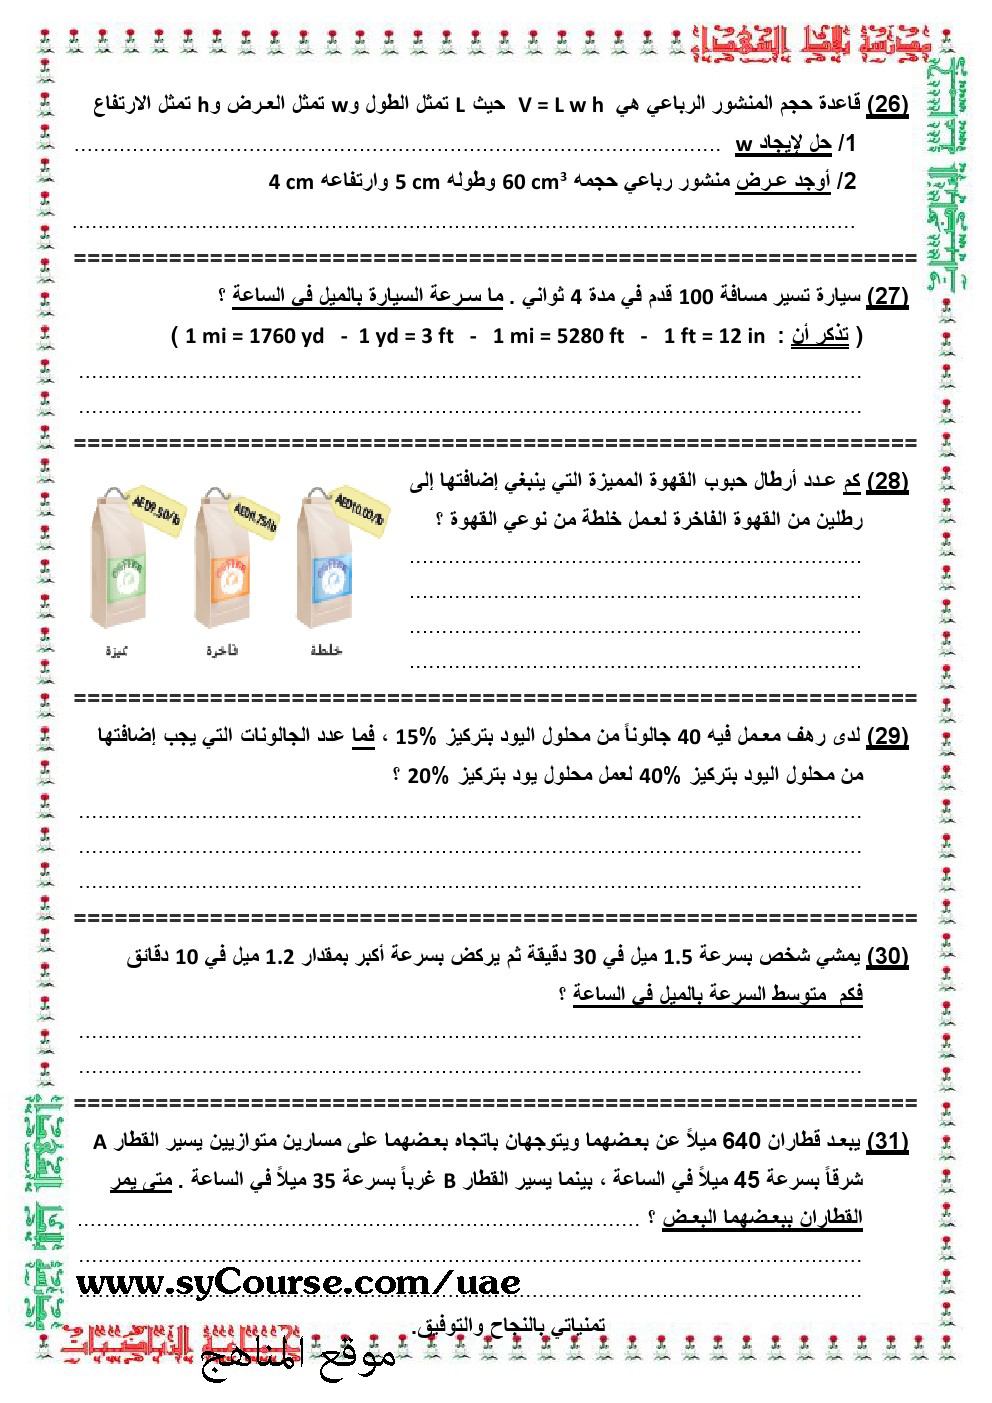 مدرسة بلاط الشهداء
(26) قاعدة حجم المنشور الرباعي هي V = L w h حيث L تمثل الطول وw تمثل العرض وh تمثل الارتفاع
1/ حل لإيجاد w ......................................................
2/ أوجد عرض منشور رباعي حجمه 60 cm³ وطوله 5 cm وارتفاعه 4 cm
(27) سيارة تسير مسافة 100 قدم في مدة 4 ثواني . ما سرعة السيارة بالميل في الساعة ؟
( تذكر أن : 1 mi = 1760 yd - 1 yd = 3 ft - 1 mi = 5280 ft - 1 ft = 12 in )
(28) كم عدد أرطال حبوب القهوة المميزة التي ينبغي إضافتها إلى
رطلين من القهوة الفاخرة لعمل خلطة من نوعي القهوة ؟
AED9.50/lb
AED11.75/lb
AED10.00/lb
COFFEE
COFFEE
COFFEE
مميزة
فاخرة
خلطة
(29) لدى رهف معمل فيه 40 جالوناً من محلول اليود بتركيز 15% ، فما عدد الجالونات التي يجب إضافتها
من محلول اليود بتركيز 40% لعمل محلول يود بتركيز 20% ؟
(30) يمشي شخص بسرعة 1.5 ميل في 30 دقيقة ثم يركض بسرعة أكبر بمقدار 1.2 ميل في 10 دقائق
فكم متوسط السرعة بالميل في الساعة ؟
(31) يبعد قطاران 640 ميلاً عن بعضهما ويتوجهان باتجاه بعضهما على مسارين متوازيين يسير القطار A
شرقاً بسرعة 45 ميلاً في الساعة ، بينما يسير القطار B غرباً بسرعة 35 ميلاً في الساعة . متى يمر
القطاران ببعضهما البعض ؟ ......................................................
www.syCourse.com/uae
تمنياتي بالنجاح والتوفيق.
موقع المناهج